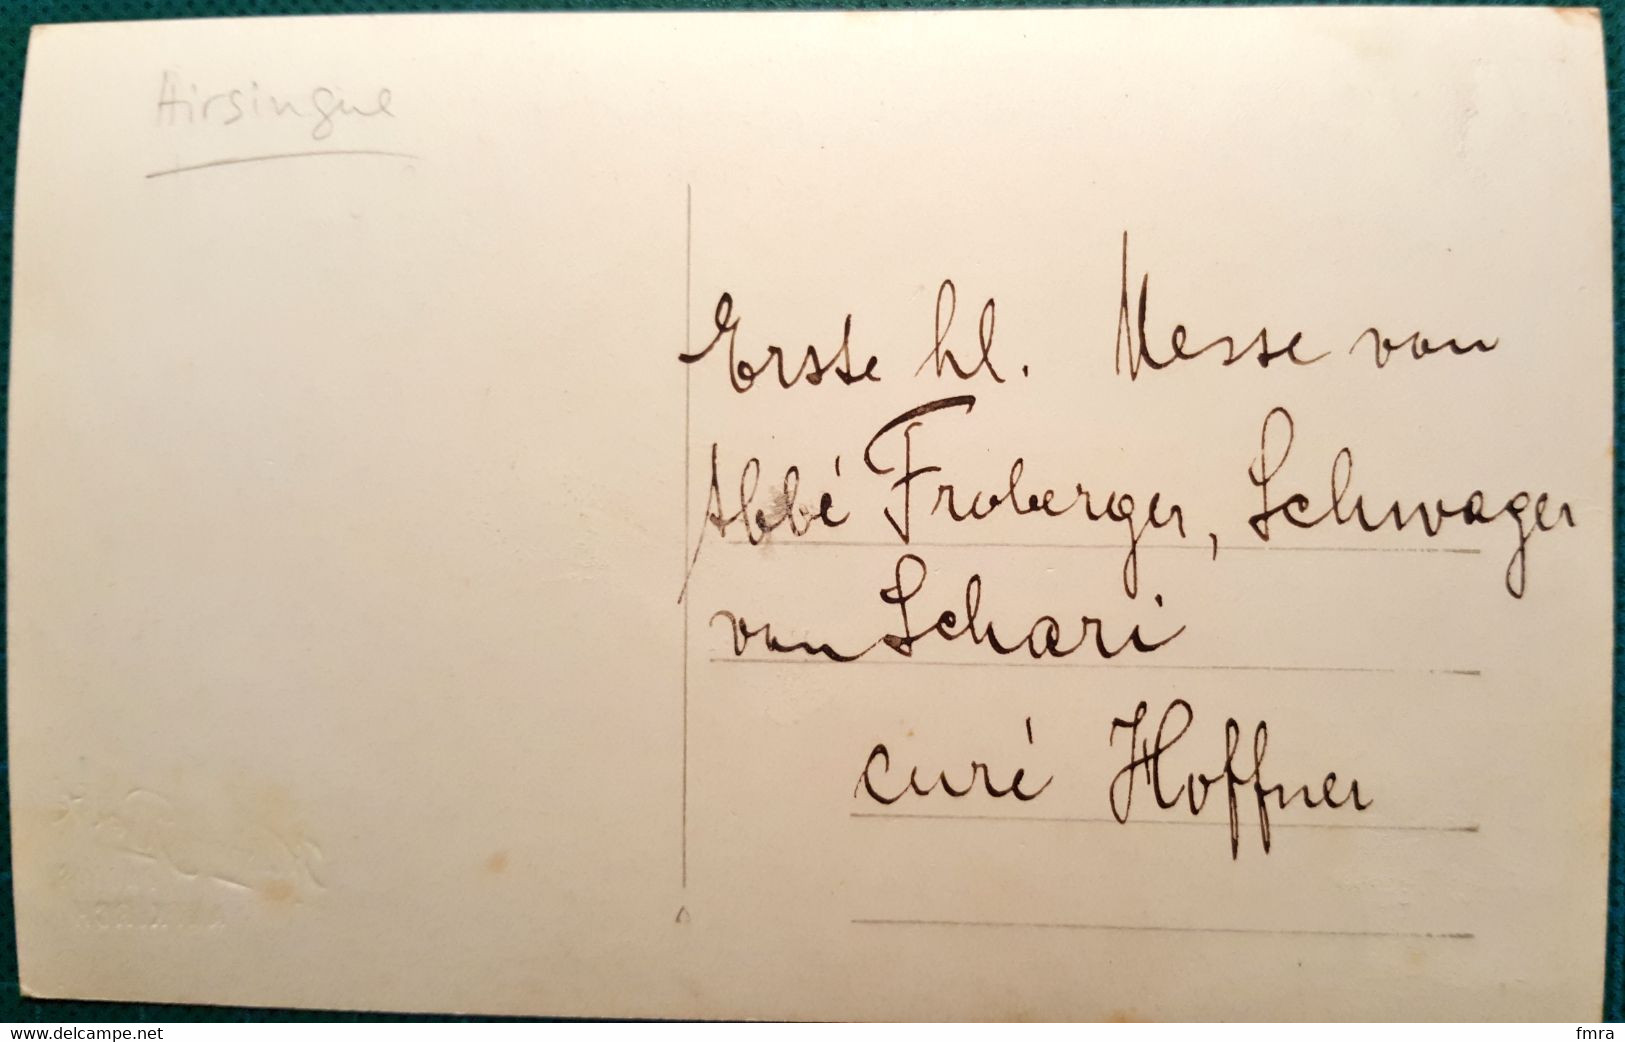 Airsingue
Erste hl. Messe von
Abbé Froberger, Schwager
von Schari
curé Hoffner
www.delcampe.net
fmra